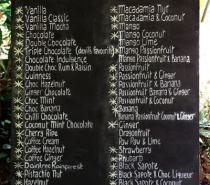 Vanilla
Vanilla Classic
Vanilla Mocha
Chocolate
Double Chocolate
Triple Chocolate (devil's favourite)
Chocolate Indulgence
Double Choc Rum & Raisin
Guinness
Choc Hazelnut
Choc Ginger
Choc Mint
Choc Banana
Chilli Chocolate
Coconut Mint Chocolate
Cherry Ripe
Coffee Cream
Coffee Hazelnut
Coffee Ginger
Daintree Rainforest
Pistachio Nut
Hazelnut
Macadamia Nut
Macadamia & Coconut
Mango
Mango Coconut
Mango Lime
Mango Passionfruit
Mango Passionfruit & Banana
Passionfruit
Passionfruit & Ginger
Passionfruit & Lime
Passionfruit & Banana
Passionfruit Banana & Ginger
Passionfruit & Coconut
Banana
Banana Passionfruit Coconut & Ginger
Ginger
Dragonfruit
Paw Paw & Lime
Strawberry
Rhubarb
Black Sapote
Black Sapote & Choc Liqueur
Black Sapote & Coconut